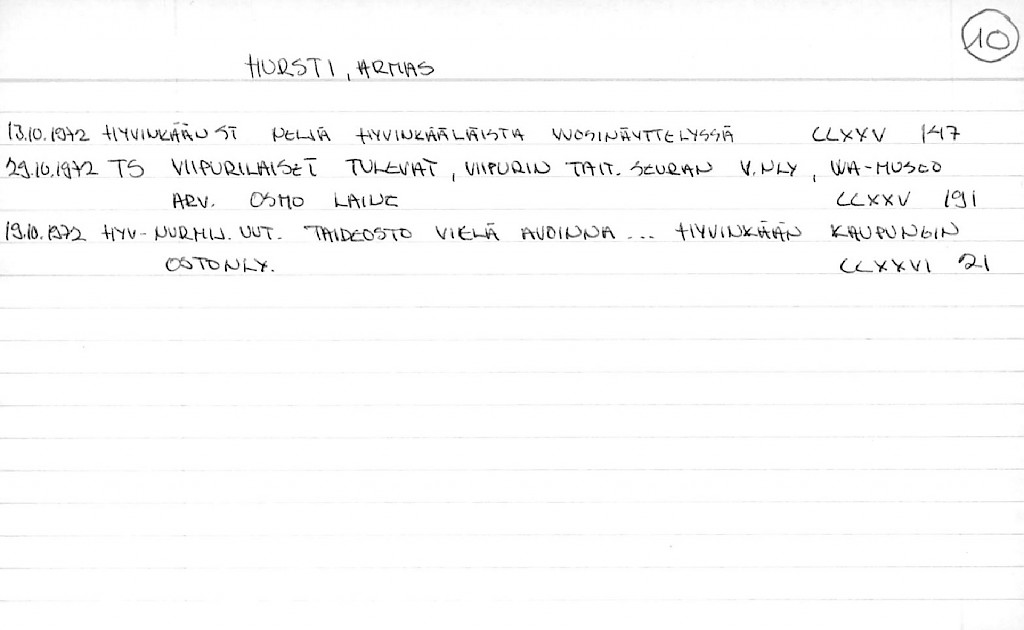 10
HURSTI, ARMAS
13.10.1972 HYVINKÄÄN ST NELJÄ HYVINKÄÄLÄISTÄ VUOSINÄYTTELYSSÄ CCXXV 147
29.10.1972 TS VIIPURILAISET TULEVAT, VIIPURIN TAIT. SEURAN V.NLY, WA-MUSEO
ARV. OSMO LAINE CCXXV 191
19.10.1972 HYV-NURMIJ. UUT. TAIDEOSTO VIELÄ AVOINNA... HYVINKÄÄN KAUPUNGIN
OSTONLY. CCXXVI 21